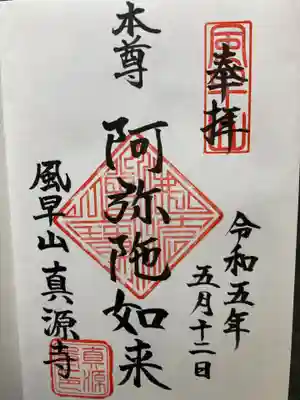 奉拝
令和五年
五月十二日
本尊
阿弥陀如来
風早山 真源寺